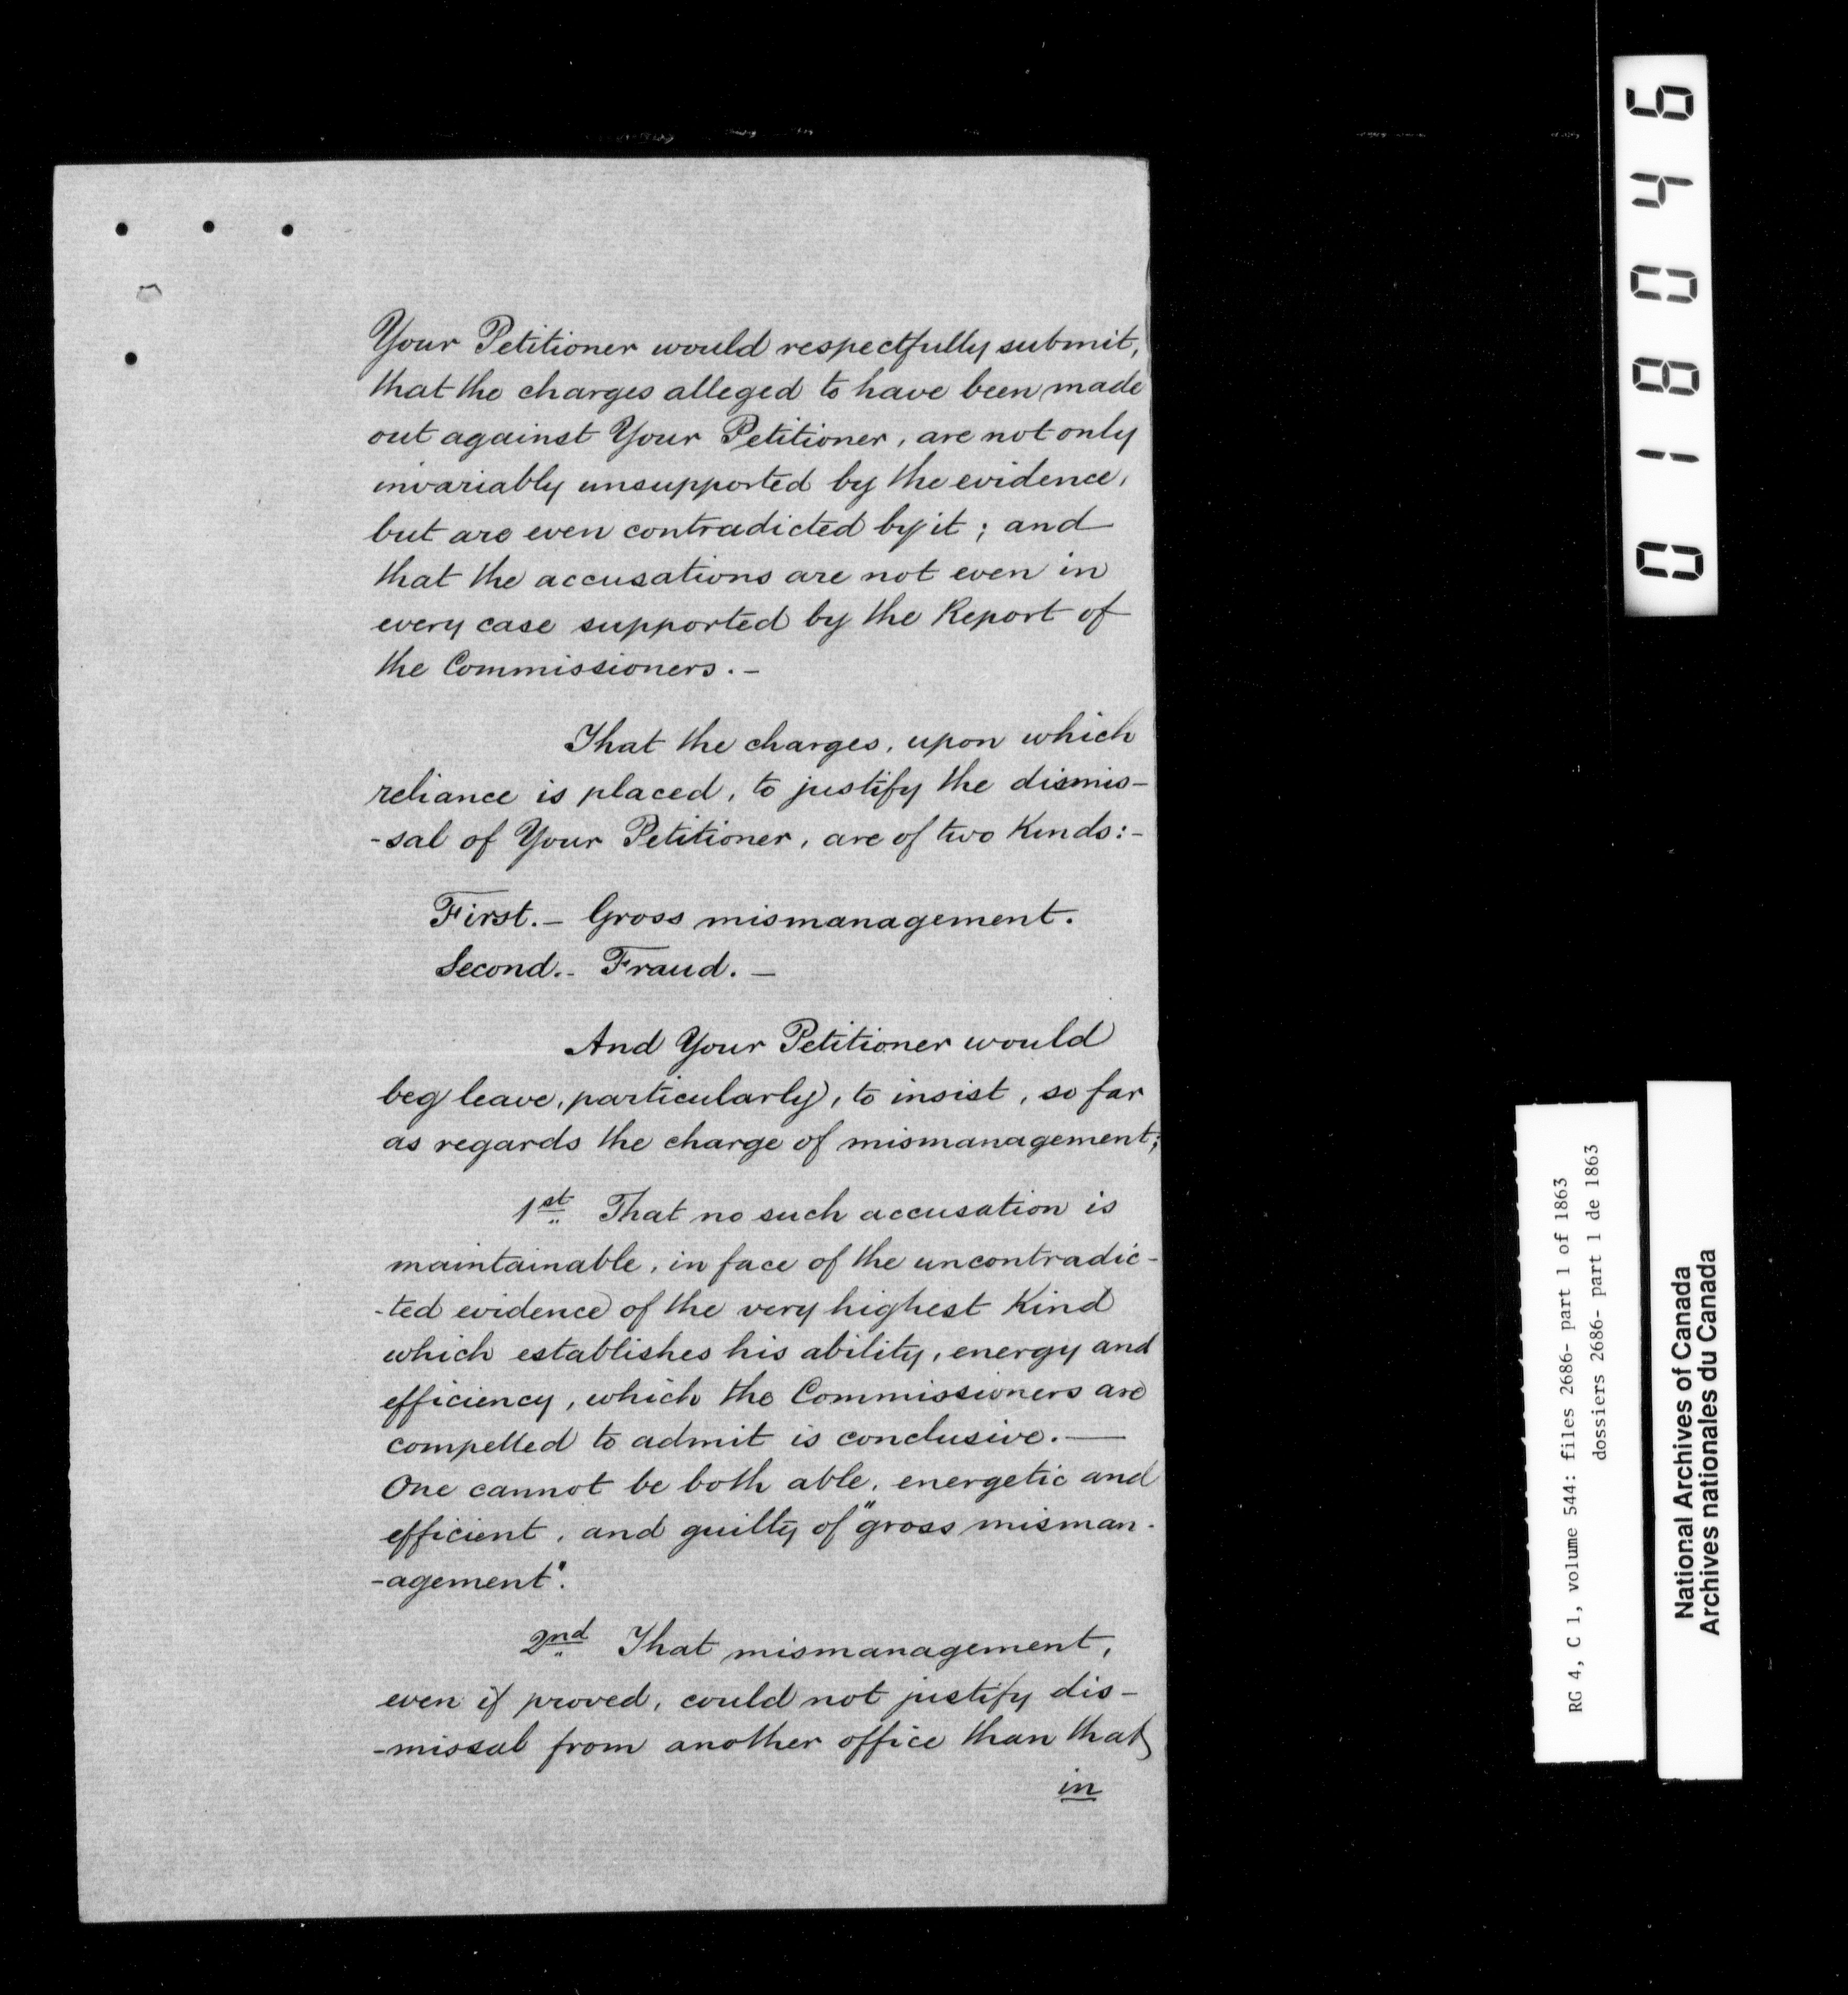 Your Petitioner would respectfully submit,
that the charges alleged to have been made
out against Your Petitioner, are not only
invariably unsupported by the evidence,
but are even contradicted by it; and
that the accusations are not even in
every case supported by the Report of
the Commissioners.-
That the charges, upon which
reliance is placed, to justify the dismis-
-sal of Your Petitioner, are of two Kinds:-
First.- Gross mismanagement.
Second.- Fraud.-
And Your Petitioner would
beg leave, particularly, to insist, so far
as regards the charge of mismanagement;
1st That no such accusation is
maintainable, in face of the uncontradic-
-ted evidence of the very highest Kind
which establishes his ability, energy and
efficiency, which the Commissioners are
compelled to admit is conclusive.—
One cannot be both able, energetic and
efficient, and guilty of "gross misman-
-agement".
2nd That mismanagement,
even if proved, could not justify dis-
-missal from another office than that
in
018046
RG 4, C 1, volume 544: files 2686- part 1 of 1863
dossiers 2686- part 1 de 1863
National Archives of Canada
Archives nationales du Canada